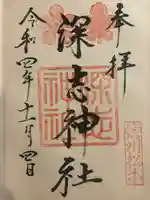 奉拝
深志神社
令和四年十一月四日